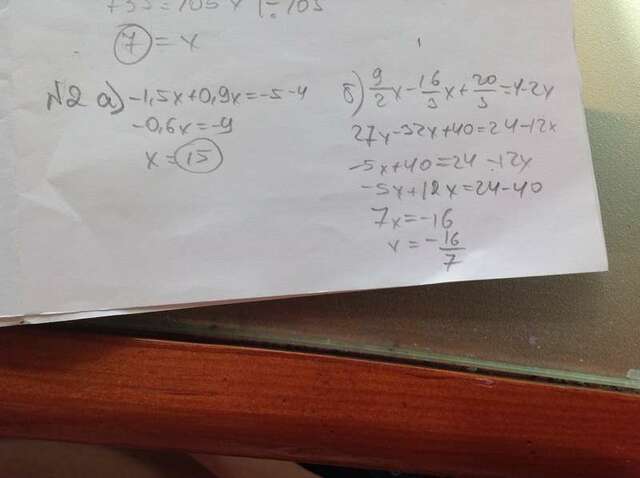 735=105x |:105
7=x
№2 а) -1,5x+0,9x=-5-4
-0,6x=-9
x=15
б) 9/2x-16/3x+20/3=4-2x
27x-32x+40=24-12x
-5x+40=24-12x
-5x+12x=24-40
7x=-16
x=-16/7